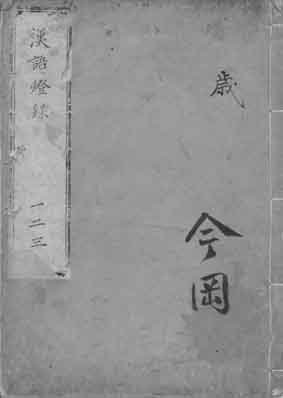 漢語燈録
一二三
歳
今岡